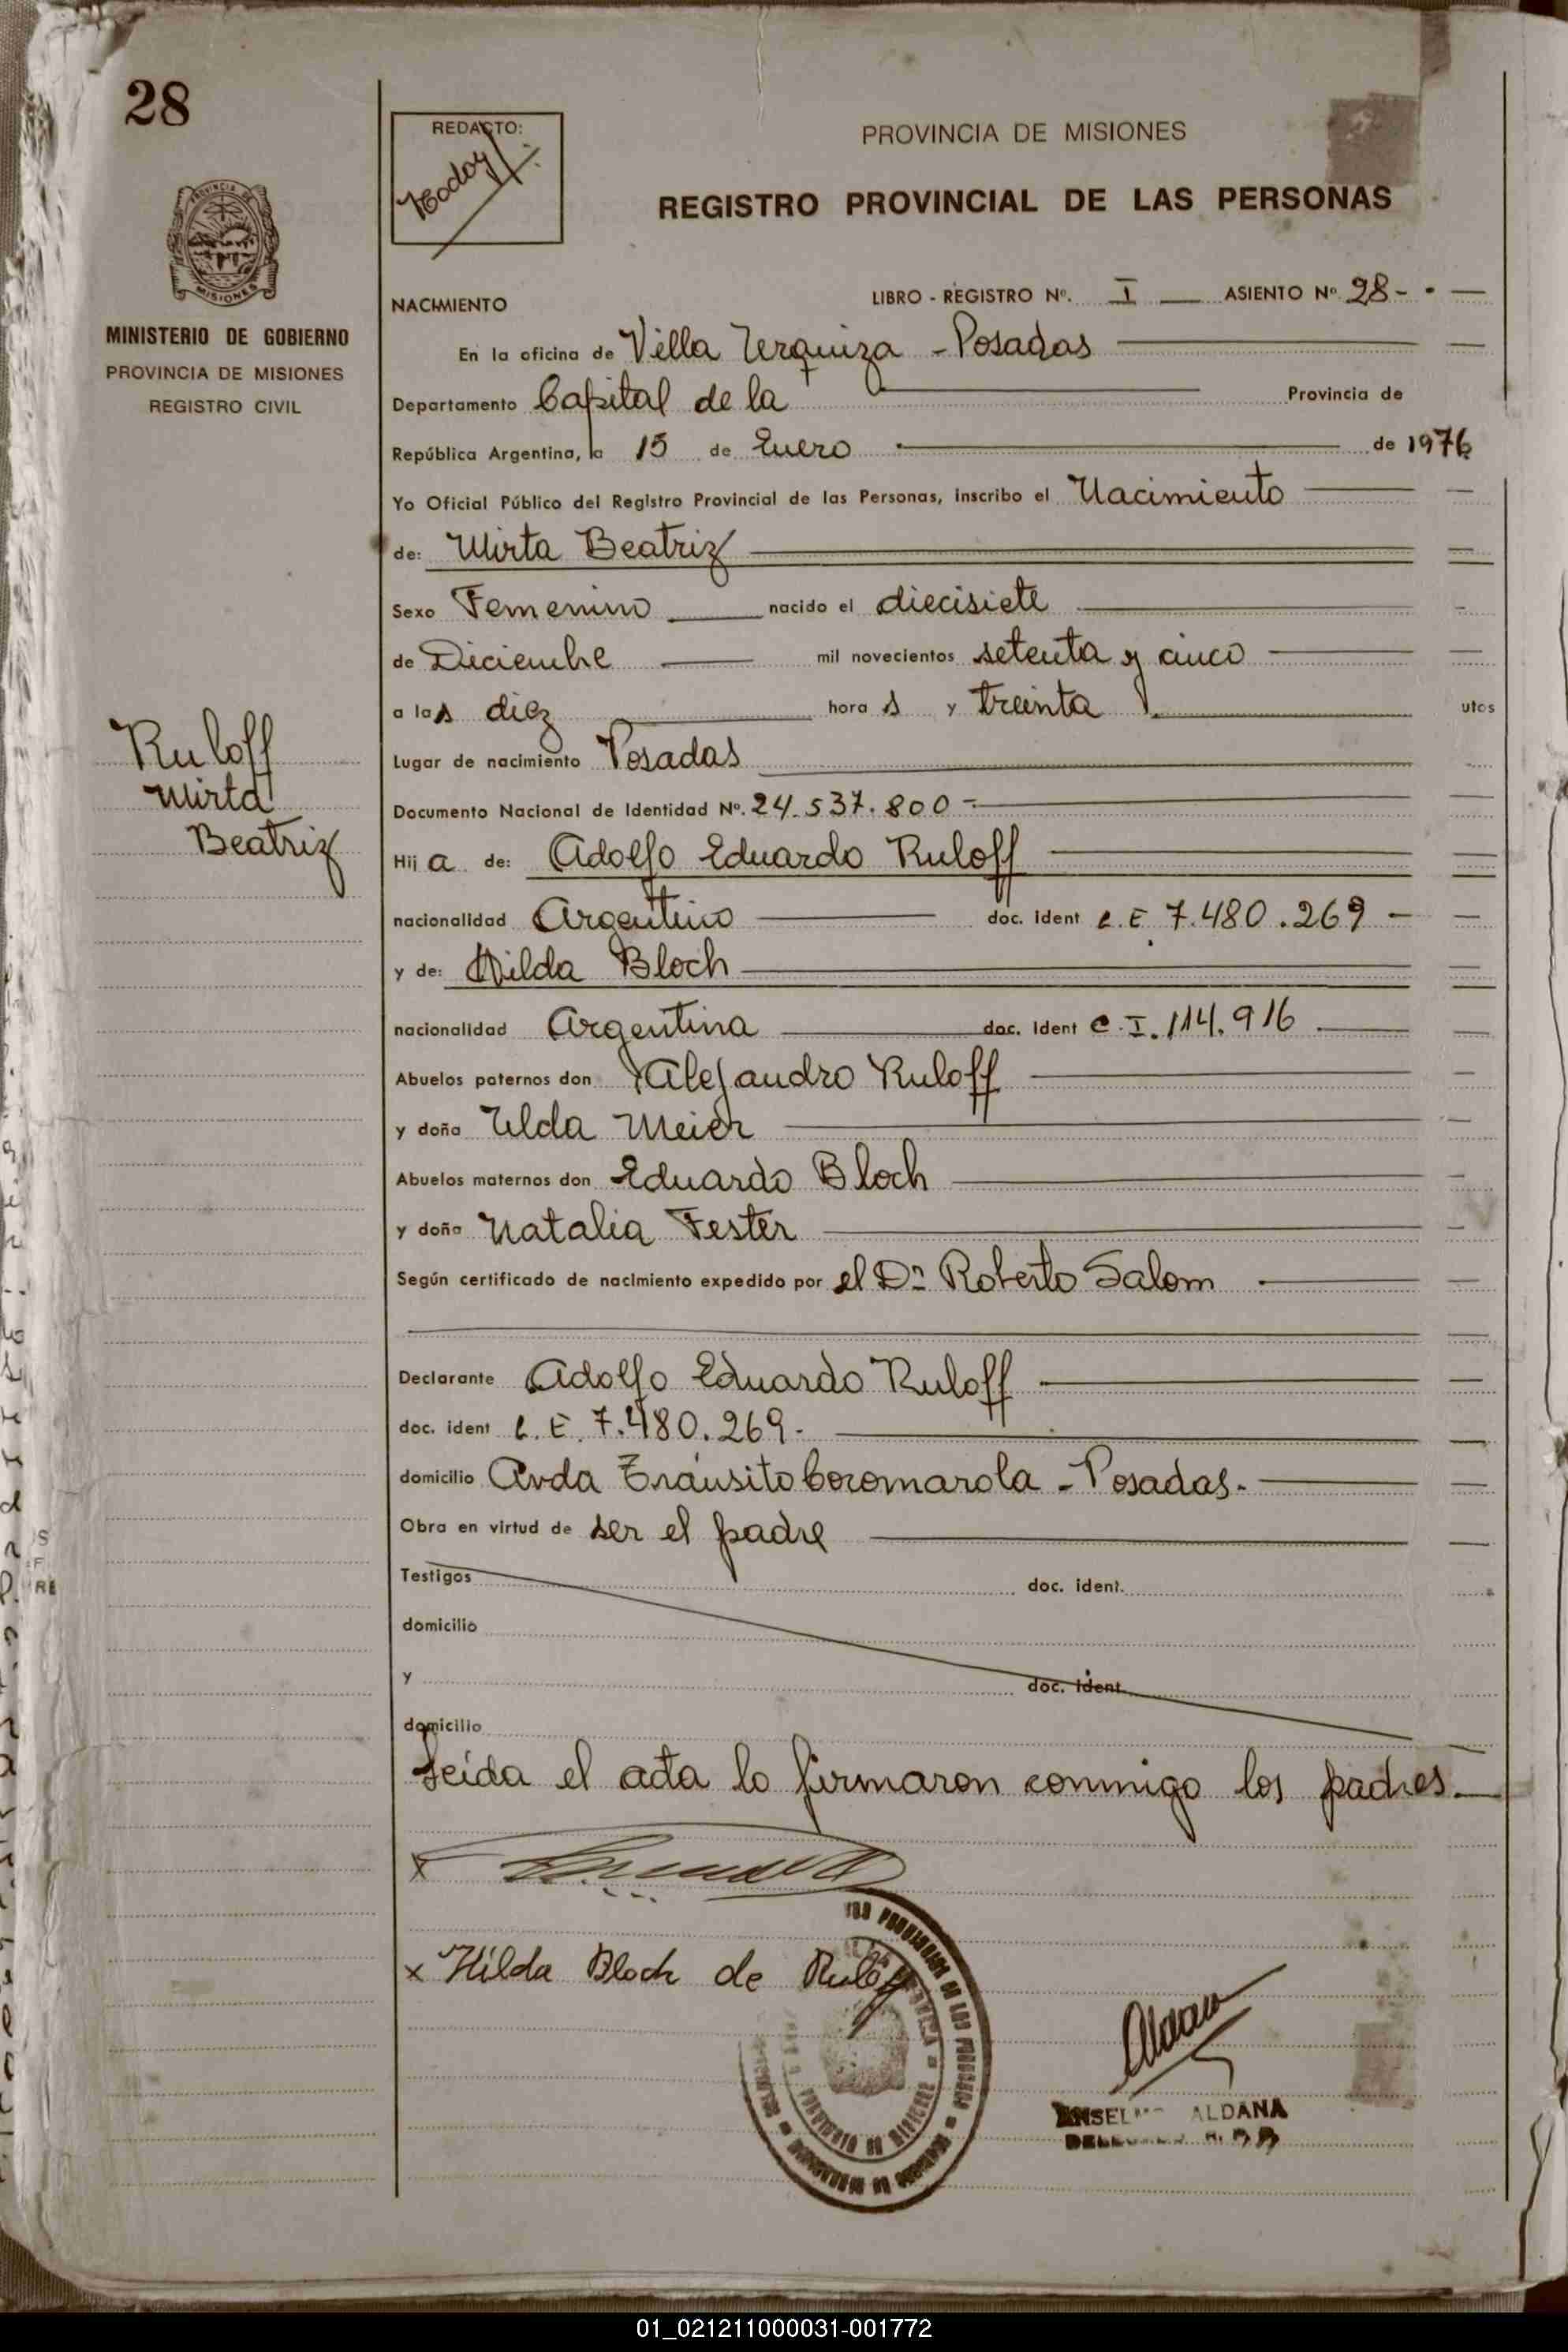 28
REDACTO:
PROVINCIA DE MISIONES
REGISTRO PROVINCIAL DE LAS PERSONAS
PROVINCIA DE
MISIONES
MINISTERIO DE GOBIERNO
PROVINCIA DE MISIONES
REGISTRO CIVIL
NACIMIENTO LIBRO - REGISTRO Nº. I ASIENTO Nº 28 -
En la oficina de Villa Urquiza - Posadas
Departamento Capital de la Provincia de
República Argentina, a 15 de Enero de 1976
Yo Oficial Público del Registro Provincial de las Personas, inscribo el Nacimiento
de: Mirta Beatriz
Sexo Femenino nacido el diecisiete
de Diciembre mil novecientos setenta y cinco
a las diez hora s y treinta utos
Lugar de nacimiento Posadas
Documento Nacional de Identidad Nº. 24.537.800 -
Ruloff
Mirta
Beatriz
Hij a de: Adolfo Eduardo Ruloff
nacionalidad Argentino doc. ident L.E. 7.480.269 -
y de: Hilda Bloch
nacionalidad Argentina doc. Ident C.I. 114.916
Abuelos paternos don Alejandro Ruloff
y doña Elda Meier
Abuelos maternos don Eduardo Bloch
y doña Natalia Fester
Según certificado de nacimiento expedido por el Dr. Roberto Salom
Declarante Adolfo Eduardo Ruloff
doc. ident L.E. 7.480.269.
domicilio Avda Tránsito Cocomarola - Posadas.
Obra en virtud de ser el padre
Testigos doc. ident.
domicilio
y doc. ident
domicilio
Leída el acta lo firmaron conmigo los padres.
x
x Hilda Bloch de Ruloff
ALDANA
01_021211000031-001772